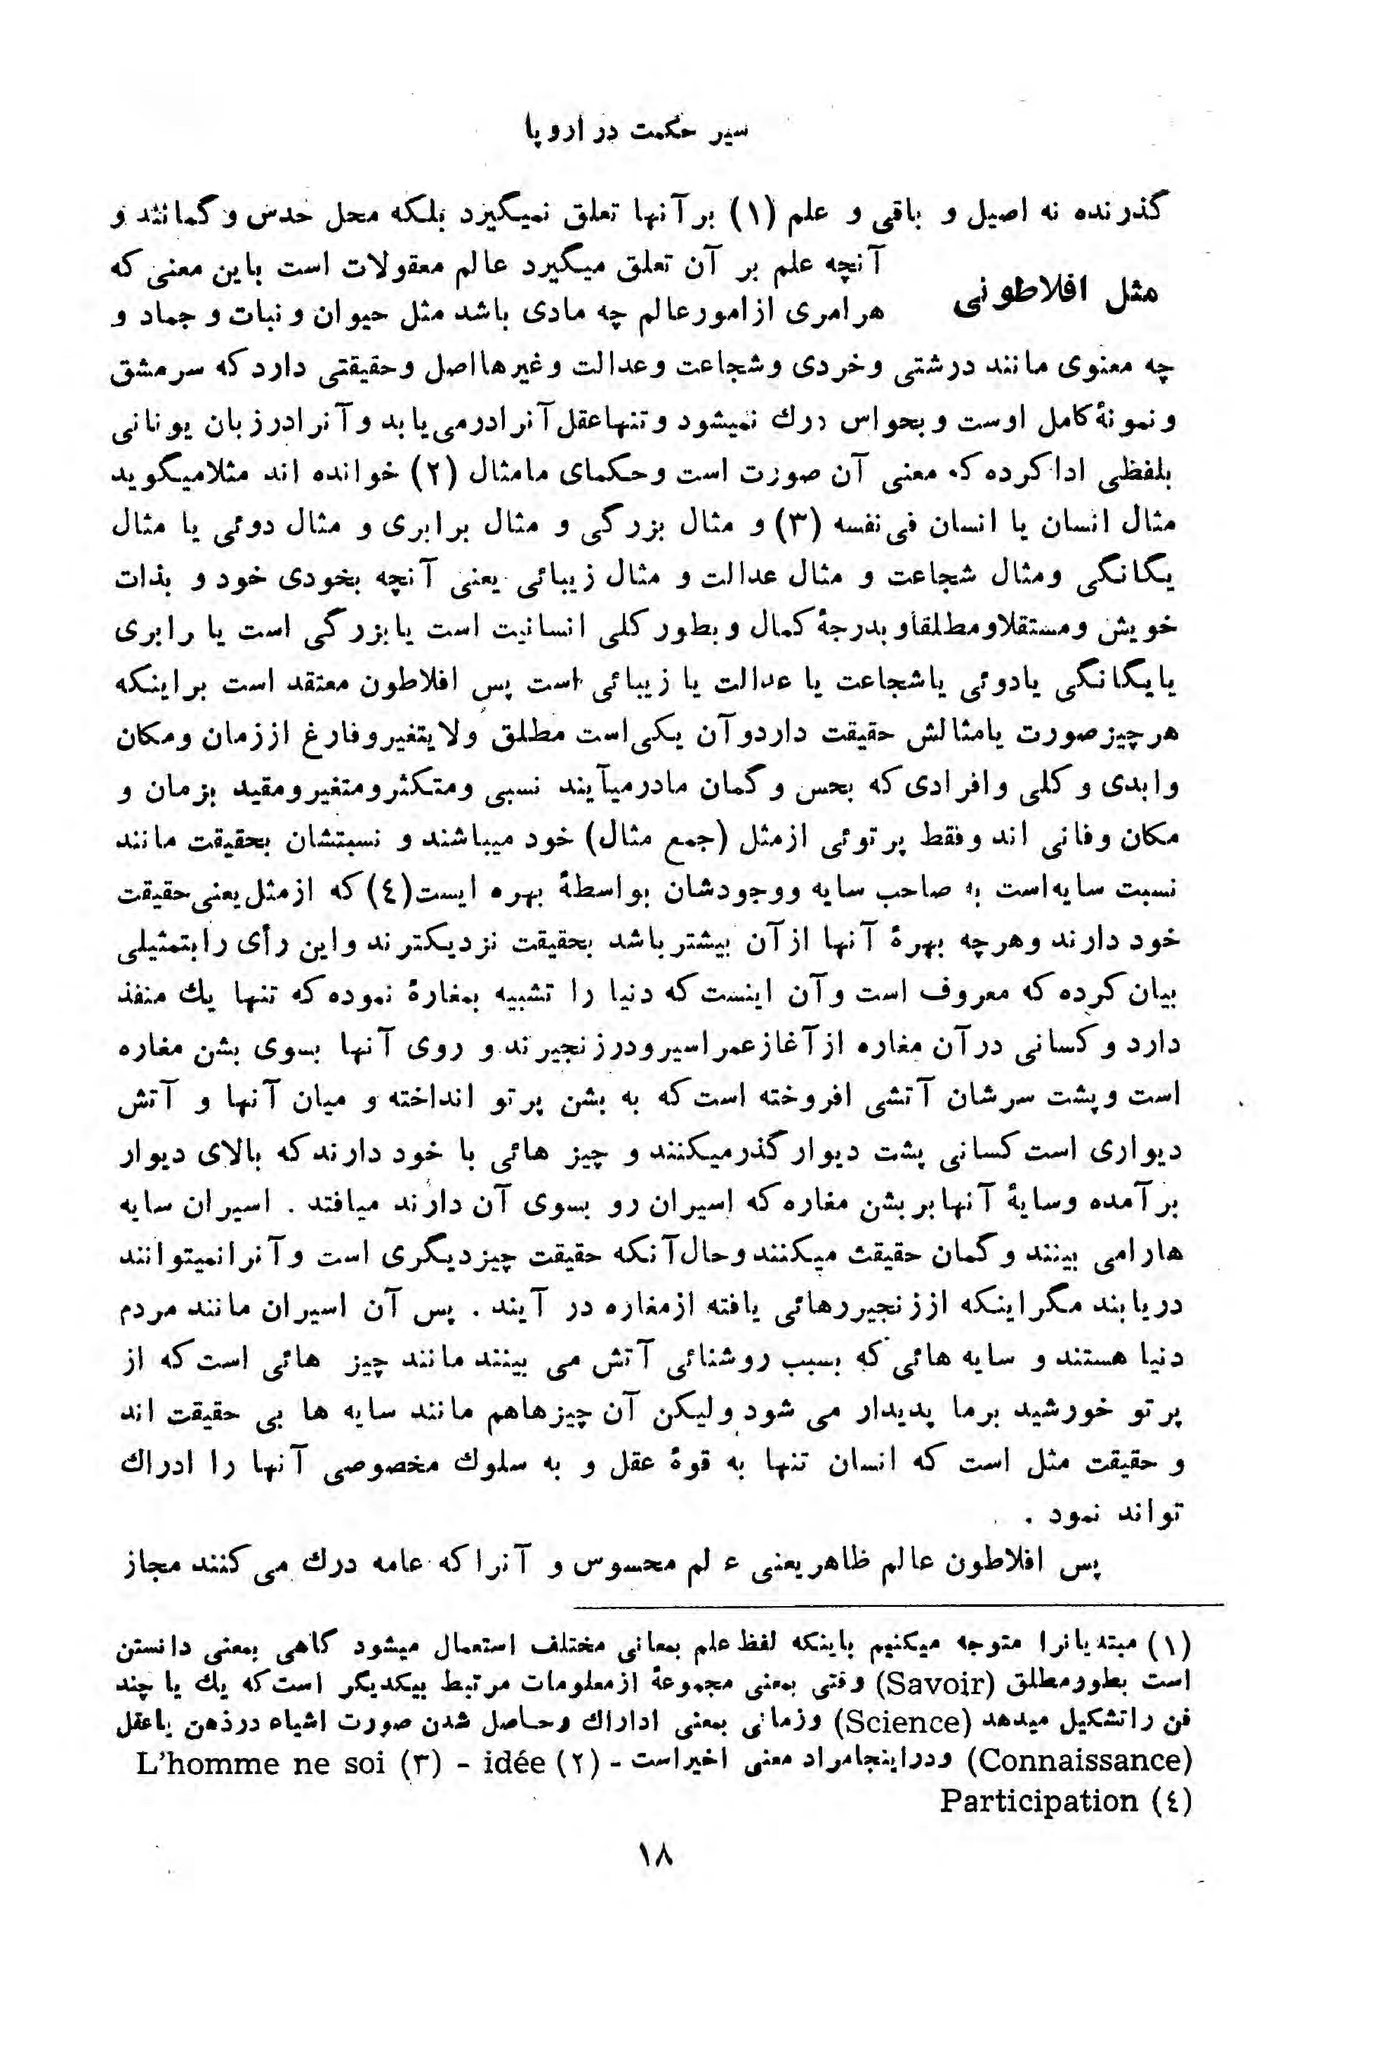 سیر حکمت در اروپا
گذرنده نه اصیل و باقی و علم (۱) بر آنها تعلق نمیگیرد بلکه محل حدس و گمانند و
مثل افلاطونی
آنچه علم بر آن تعلق میگیرد عالم معقولات است باین معنی که
هر امری از امور عالم چه مادی باشد مثل حیوان و نبات و جماد و
چه معنوی مانند درشتی و خردی و شجاعت و عدالت و غیرها اصل و حقیقتی دارد که سرمشق
و نمونهٔ کامل اوست و بحواس درك نمیشود و تنها عقل آنرا در می یابد و آنرا در زبان یونانی
بلفظی ادا کرده که معنی آن صورت است و حکمای ما مثال (۲) خوانده اند مثلا میگوید
مثال انسان یا انسان فی نفسه (۳) و مثال بزرگی و مثال برابری و مثال دوئی یا مثال
یگانگی و مثال شجاعت و مثال عدالت و مثال زیبائی یعنی آنچه بخودی خود و بذات
خویش و مستقلا و مطلقاً و بدرجهٔ کمال و بطور کلی انسانیت است یا بزرگی است یا رابری
یا یگانگی یا دوئی یا شجاعت یا عدالت یا زیبائی است پس افلاطون معتقد است بر اینکه
هر چیز صورت یا مثالش حقیقت دارد و آن یکی است مطلق و لایتغیر و فارغ از زمان و مکان
و ابدی و کلی و افرادی که بحس و گمان ما در میآیند نسبی و متکثر و متغیر و مقید بزمان و
مکان و فانی اند و فقط پرتوئی از مثل (جمع مثال) خود میباشند و نسبتشان بحقیقت مانند
نسبت سایه است به صاحب سایه و وجودشان بواسطهٔ بهره ایست (٤) که از مثل یعنی حقیقت
خود دارند و هر چه بهرهٔ آنها از آن بیشتر باشد بحقیقت نزدیکترند و این رأی را بتمثیلی
بیان کرده که معروف است و آن اینست که دنیا را تشبیه بمغارهٔ نموده که تنها یك منفذ
دارد و کسانی در آن مغاره از آغاز عمر اسیر و در زنجیرند و روی آنها بسوی بشن مغاره
است و پشت سرشان آتشی افروخته است که به بشن پرتو انداخته و میان آنها و آتش
دیواری است کسانی پشت دیوار گذر میکنند و چیز هائی با خود دارند که بالای دیوار
بر آمده و سایهٔ آنها بر بشن مغاره که اسیران رو بسوی آن دارند میافتد . اسیران سایه
ها را می بینند و گمان حقیقت میکنند و حال آنکه حقیقت چیز دیگری است و آنرا نمیتوانند
دریابند مگر اینکه از زنجیر رهائی یافته از مغاره در آیند . پس آن اسیران مانند مردم
دنیا هستند و سایه هائی که بسبب روشنائی آتش می بینند مانند چیز هائی است که از
پرتو خورشید بر ما پدیدار می شود ولیکن آن چیزها هم مانند سایه ها بی حقیقت اند
و حقیقت مثل است که انسان تنها به قوهٔ عقل و به سلوك مخصوصی آنها را ادراك
تواند نمود .
پس افلاطون عالم ظاهر یعنی ع لم محسوس و آنرا که عامه درك می کنند مجاز
(۱) مبتدیانرا متوجه میکنیم باینکه لفظ علم بمعانی مختلف استعمال میشود گاهی بمعنی دانستن
است بطور مطلق (Savoir) وقتی بمعنی مجموعهٔ از معلومات مرتبط بیکدیگر است که یك یا چند
فن را تشکیل میدهد (Science) و زمانی بمعنی اداراك و حاصل شدن صورت اشیاء در ذهن یا عقل
(Connaissance) و در اینجا مراد معنی اخیر است - (۲) idée - (۳) L'homme ne soi
(٤) Participation
۱۸